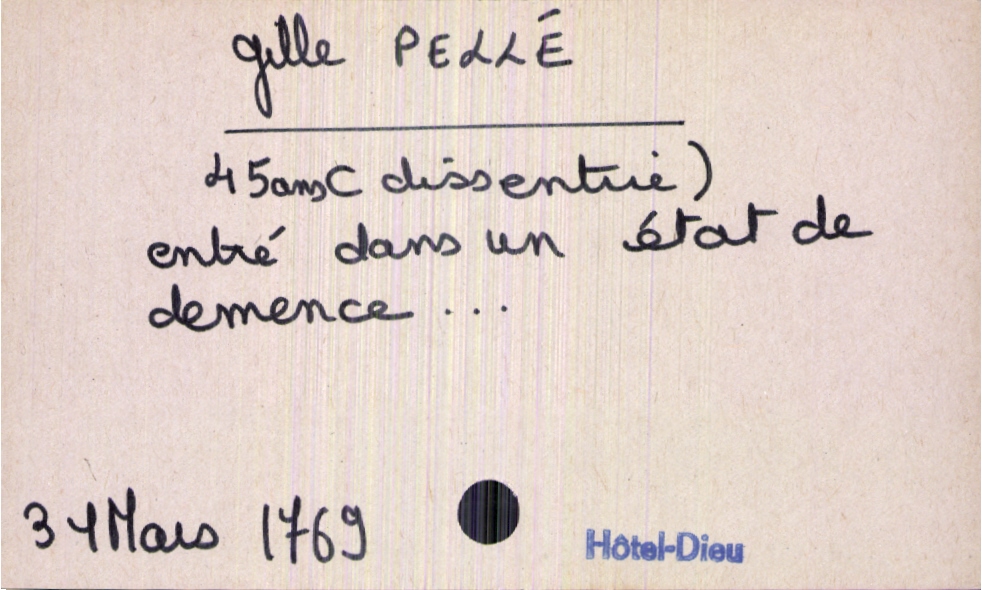 gille PELLÉ
45ans ( dissentrie)
entré dans un état de
demence ...
31 Mars 1769
Hôtel-Dieu